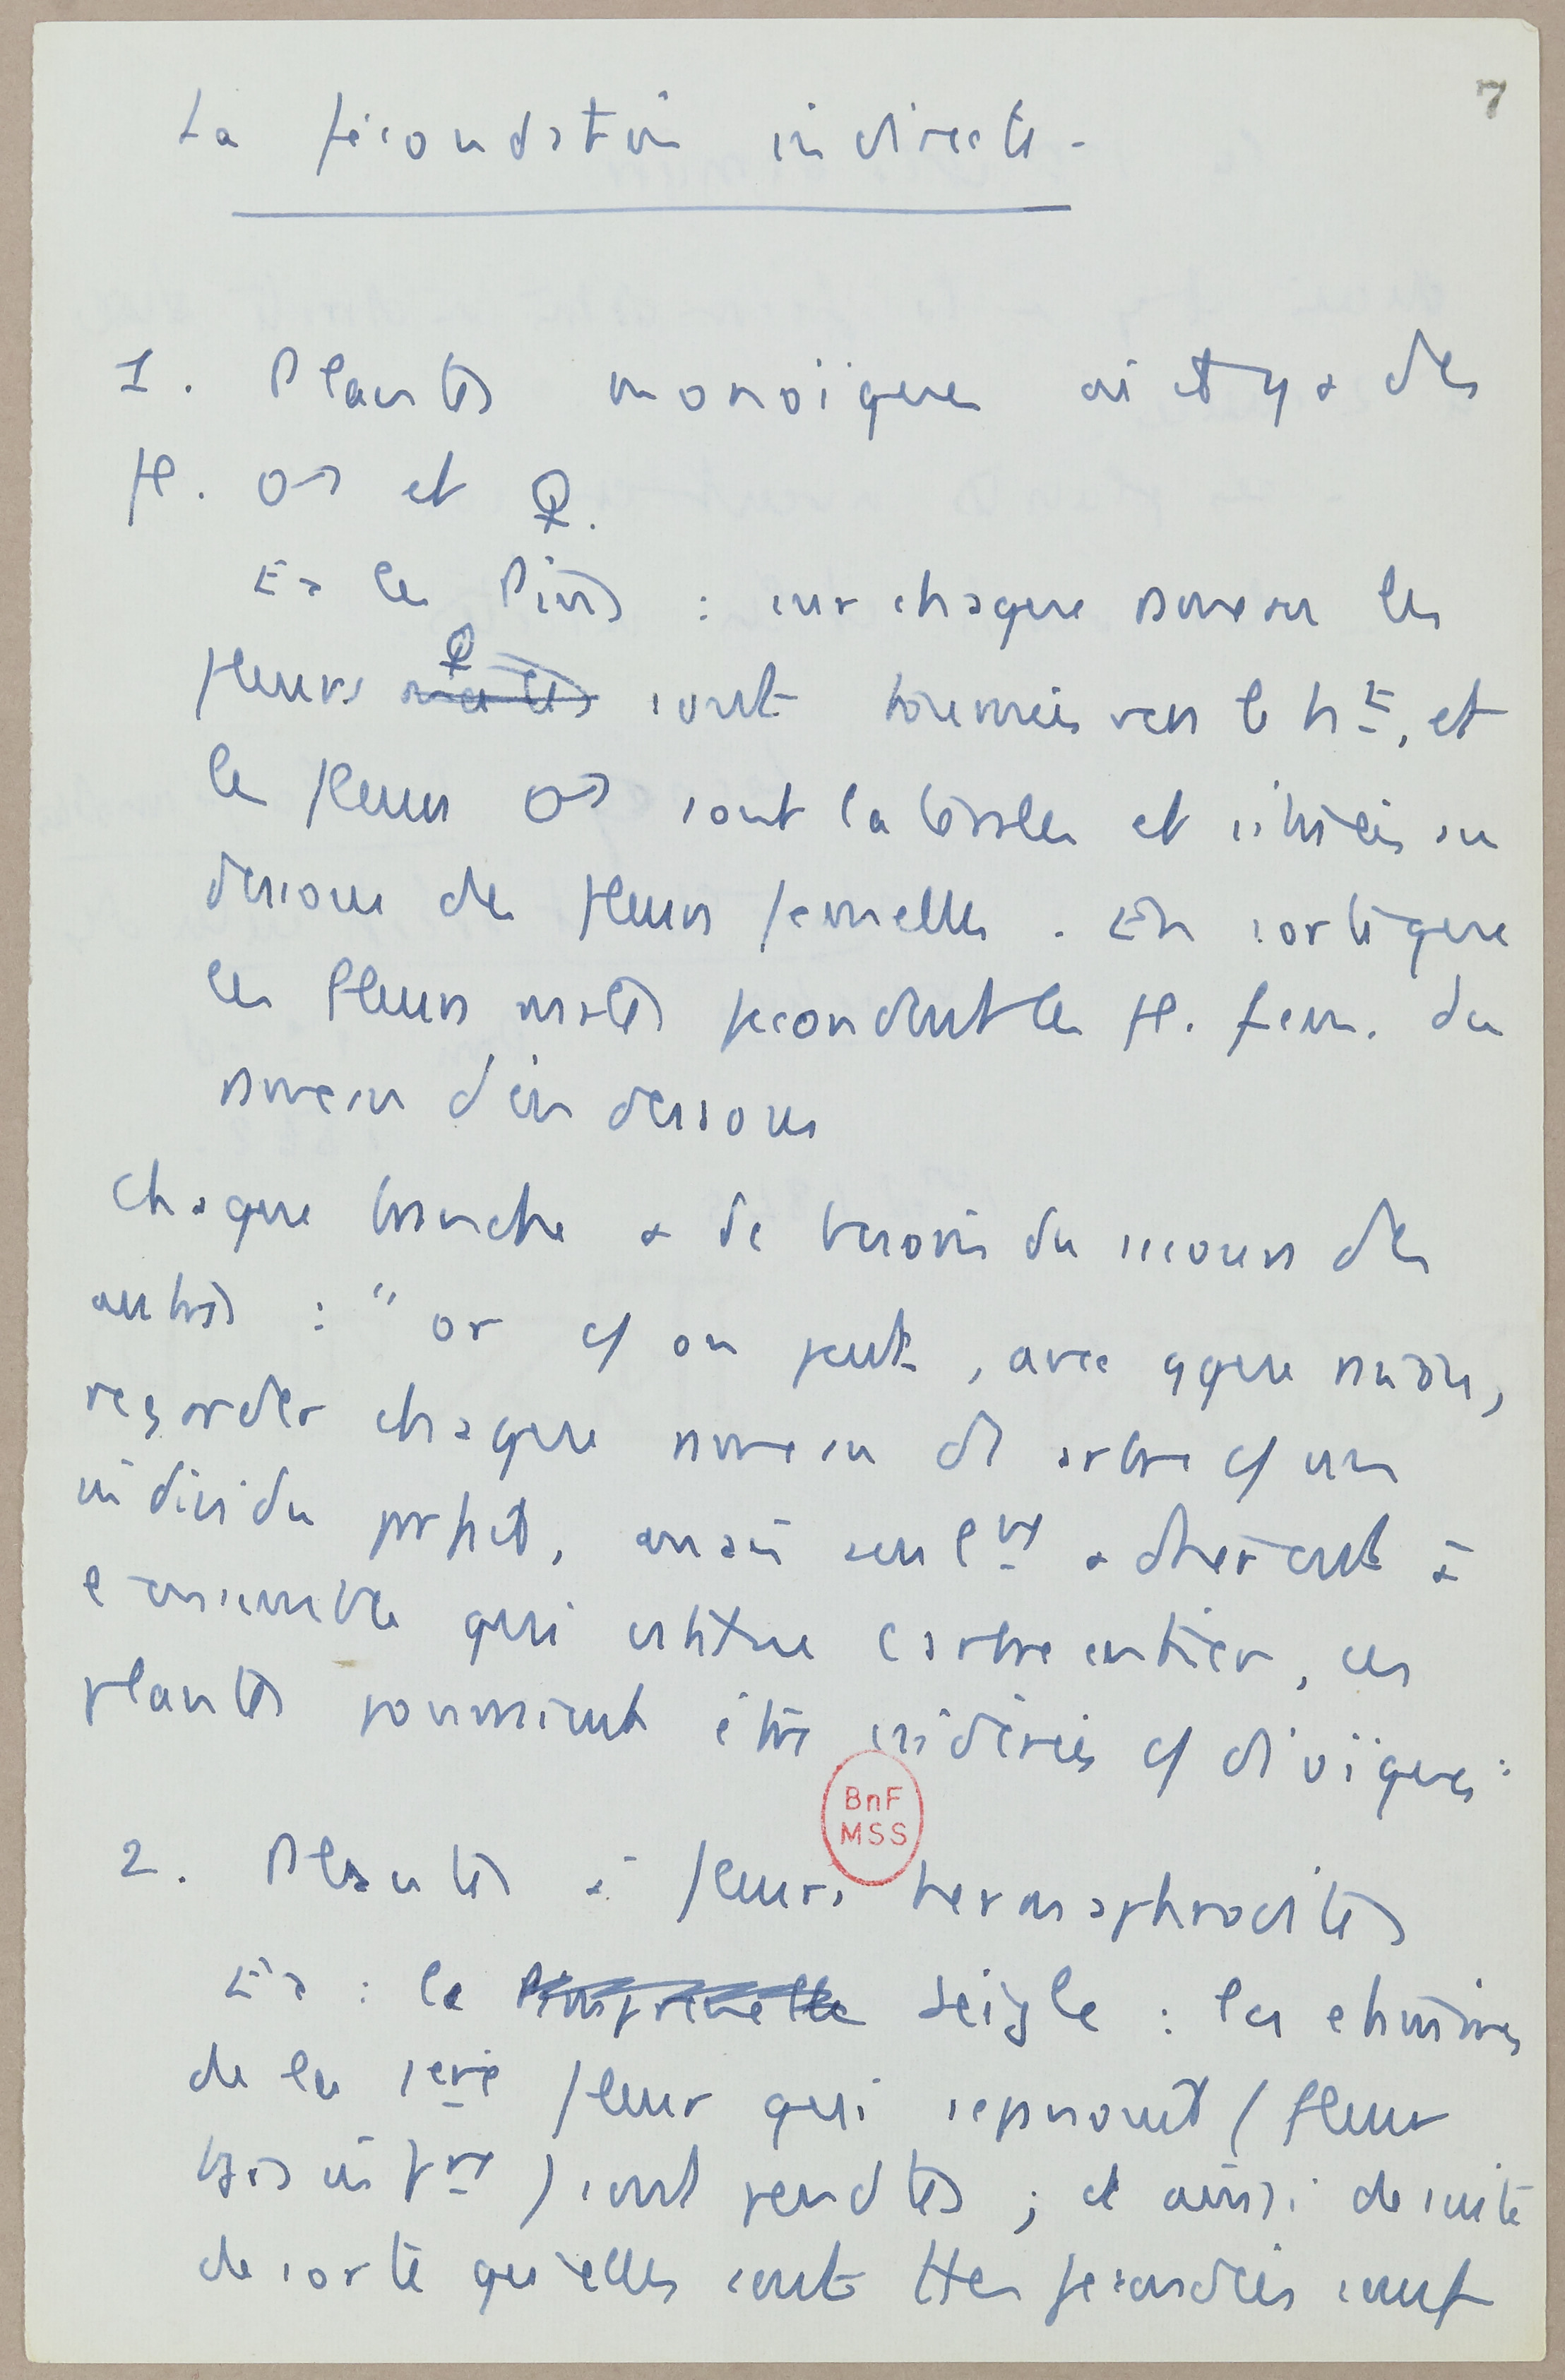 7
La fécondation indirecte.
1. Plantes monoïques où il y a des
fl. ♂ et ♀.
Ex les Pins : sur chaque rameau les
fleurs ♀ sont tournées vers le ht, et
les fleurs ♂ sont latérales et situées au
dessous des fleurs femelles. En sorte que
les fleurs males fécondent les fl. fem. du
rameau d'en dessous
Chaque branche a dc besoin du secours des
autres : "or cf on peut, avec qque raison,
regarder chaque rameau d arbre cf un
individu parfait, mais seult adhérent à
l'ensemble qui constitue l'arbre entier, ces
plantes pourraient être considérées cf dioïques"
2. Plantes à fleurs hermaphrodites
Ex : le Seigle : les étamines
de la 1ere fleur qui s'épanouit (fleur
) sont perdues ; et ainsi de suite
de sorte qu'elles sont ttes fécondées sauf
BnF
MSS